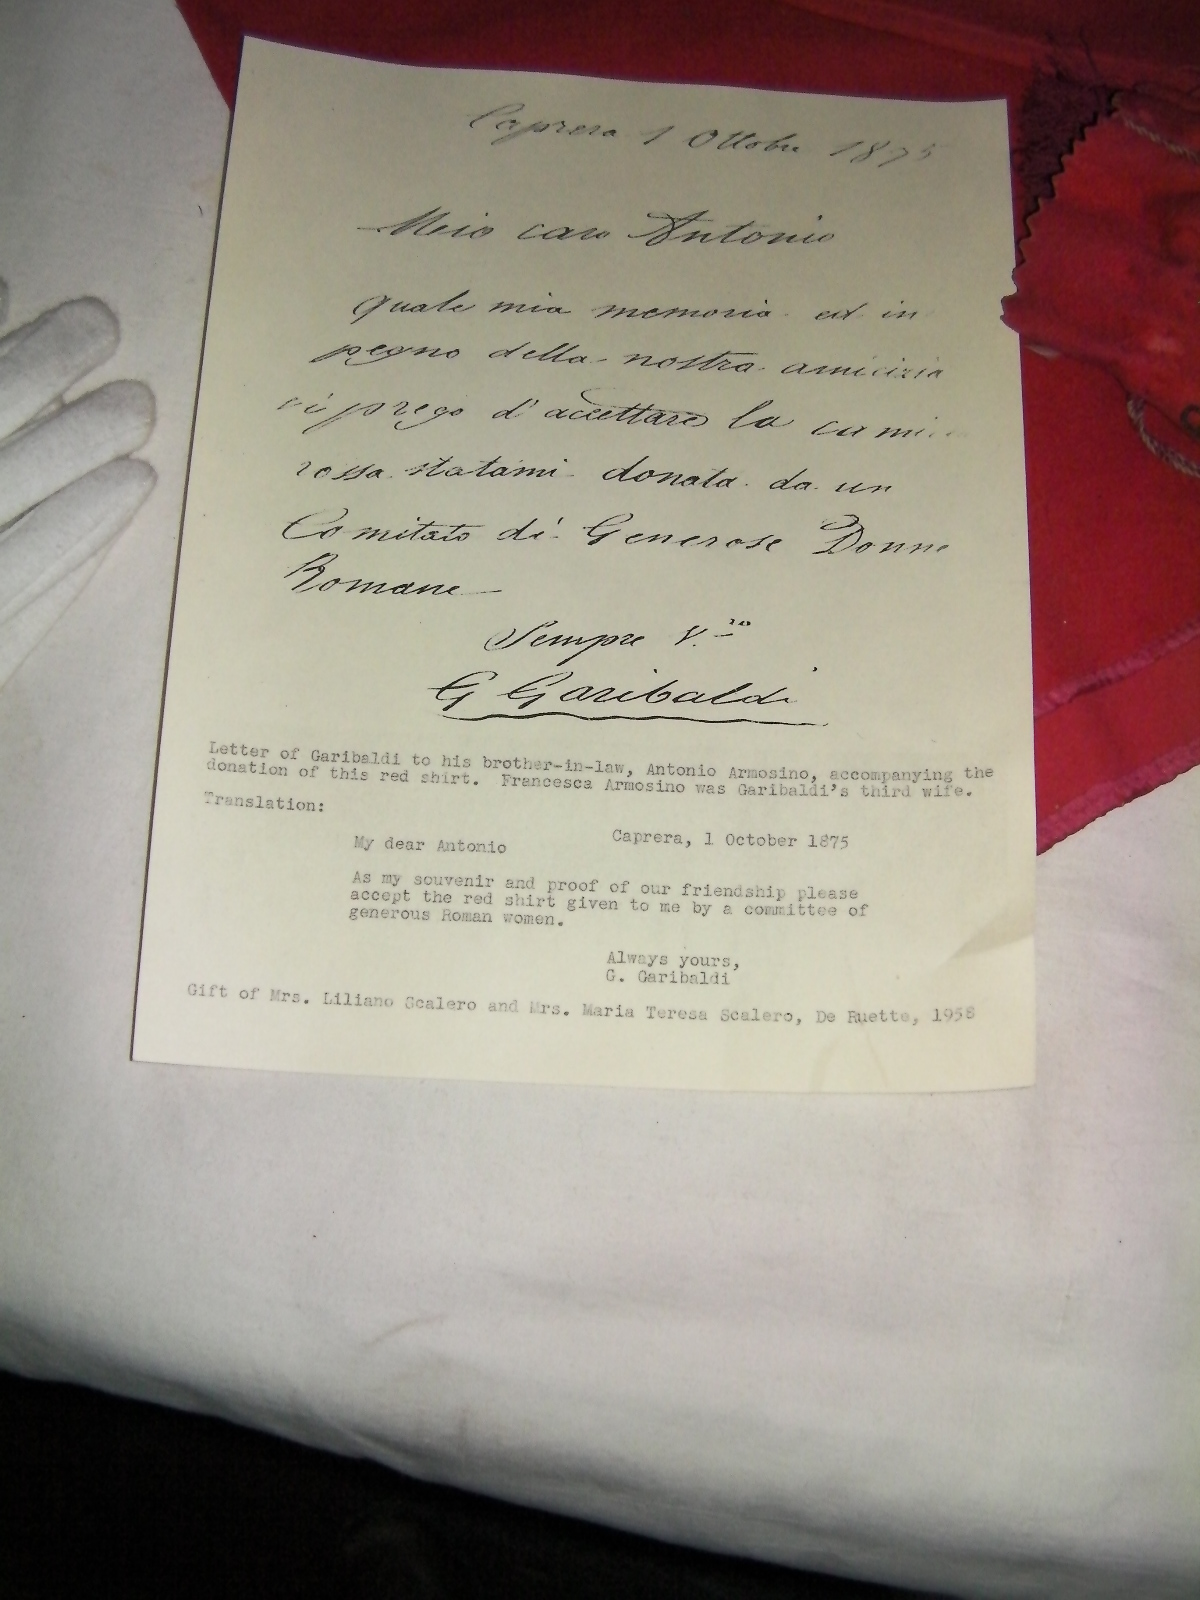 Caprera 1 Ottobre 1875
Meio caro Antonio
quale mia memoria ed in
pegno della nostra amicizia
vi prego d'accettare la
rossa statami donata da un
Comitato di Generose Donne
Romane
Sempre V.ro
G Garibaldi
Letter of Garibaldi to his brother-in-law, Antonio Armosino, accompanying the
donation of this red shirt. Francesca Armosino was Garibaldi's third wife.
Translation:
Caprera, 1 October 1875
My dear Antonio
As my souvenir and proof of our friendship please
accept the red shirt given to me by a committee of
generous Roman women.
Always yours,
G. Garibaldi
Gift of Mrs. Liliano Scalero and Mrs. Maria Teresa Scalero, De Ruette, 1958